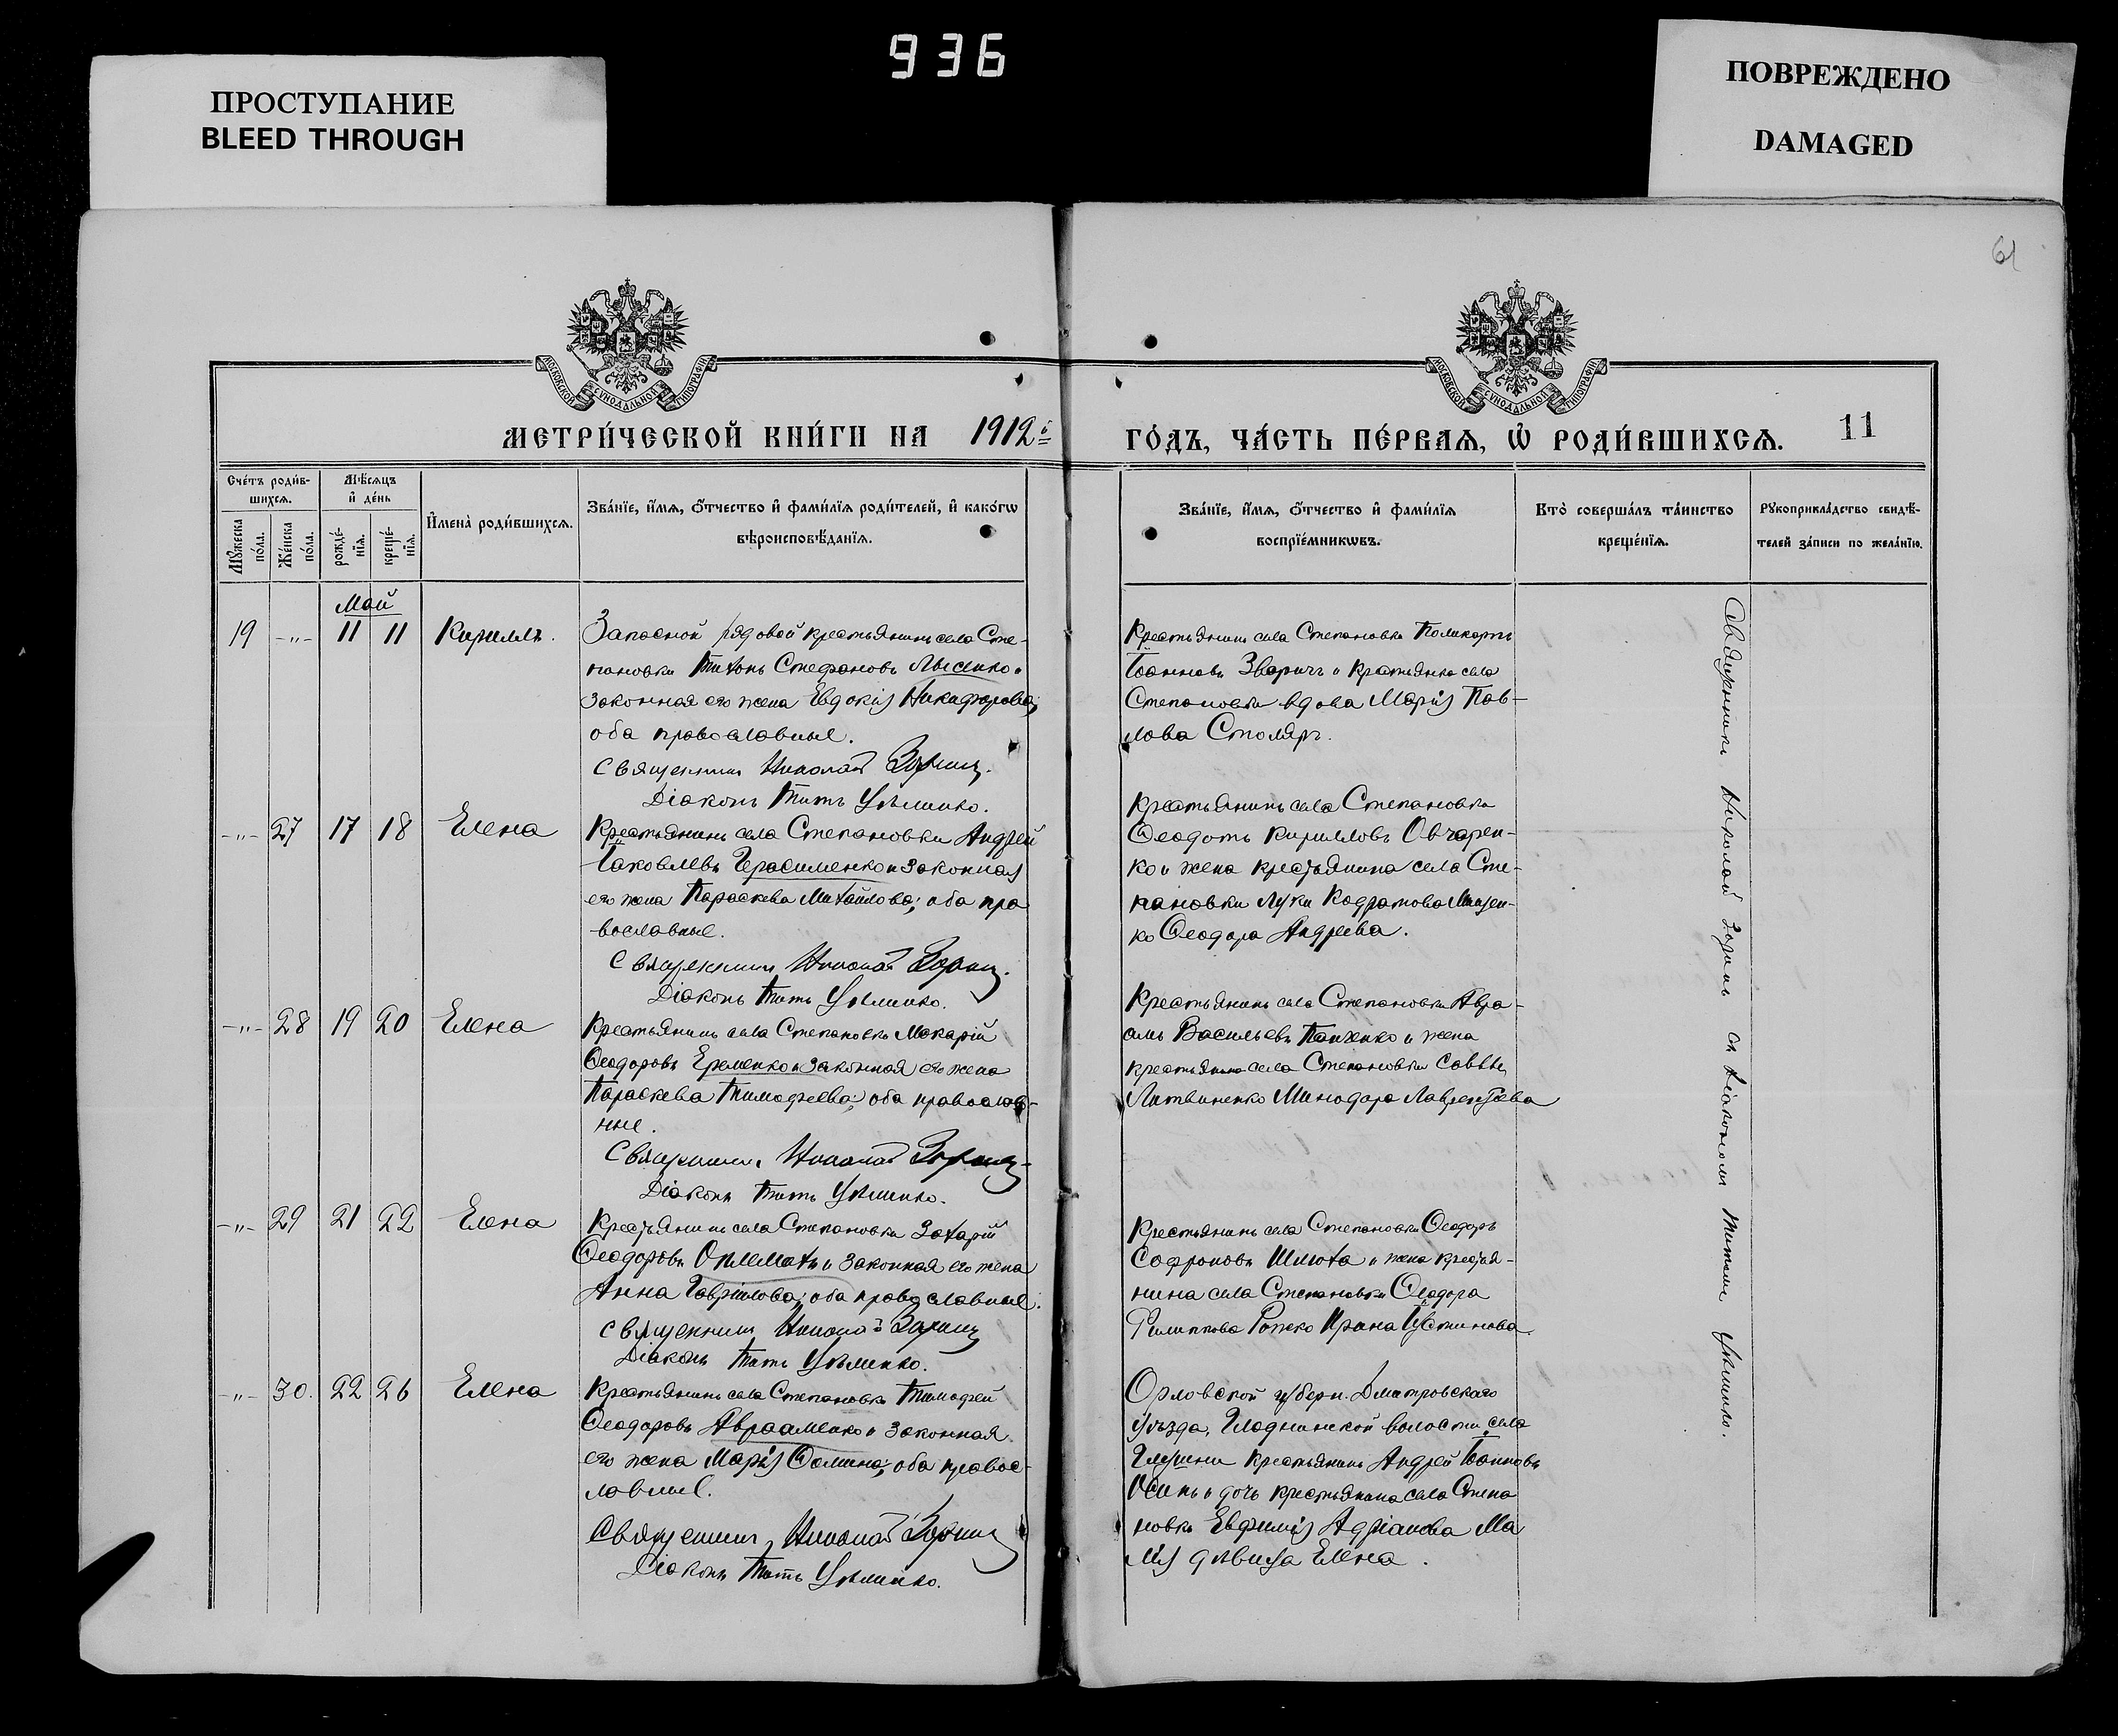 936
ПРОСТУПАНИЕ
BLEED THROUGH
ПОВРЕЖДЕНО
DAMAGED
61
МОСКОВСКОЙ СѴНОДАЛЬНОЙ ТИПОГРАФІИ
МОСКОВСКОЙ СѴНОДАЛЬНОЙ ТИПОГРАФІИ
МЕТРИ́ЧЕСКОЙ КНИ́ГИ НА 1912й
ГО́ДЪ, ЧА́СТЬ ПЕ́РВАѦ, Ѽ РОДИ́ВШИХСѦ. 11
Сче́тъ роди́в-
шихсѧ.
Мꙋ́жеска по́ла.
Же́нска по́ла.
Мѣ́сѧцъ
и҆ де́нь
рожде́-
нїѧ.
креще́-
нїѧ.
И҆мена̀ роди́вшихсѧ.
Зва́нїе, и҆́мѧ, ѻ҆́тчество и҆ фами́лїѧ роди́телей, и҆ како́гѡ
вѣроисповѣ́данїѧ.
Зва́нїе, и҆́мѧ, ѻ҆́тчество и҆ фами́лїѧ
воспрїе́мникѡвъ.
Кто̀ соверша́лъ та́инство
креще́нїѧ.
Рꙋкоприкла́дство свидѣ́-
телей за́писи по жела́нїю.
Май
19 -"- 11 11 Кириллъ.
Запасной рядовой крестьянинъ села Сте-
пановки Тихонъ Стефановъ Лысенко и
законная его жена Евдокія Никифорова;
оба православные.
Священникъ Николай Зоринъ.
Діаконъ Титъ Уѣменко.
Крестьянинъ села Степановки Поликарпъ
Іоанновъ Зваричъ и крестьянка села
Степановки вдова Марія Пав-
лова Столяръ.
-"- 27 17 18 Елена
Крестьянинъ села Степановки Андрей
Іаковлевъ Герасименко и законная
его жена Параскева Михайлова; оба пра
вославные.
Священникъ Николай Зоринъ.
Діаконъ Титъ Уѣменко.
Крестьянинъ села Степановки
Ѳеодотъ Кирилловъ Овчарен-
ко и жена крестьянина села Сте-
пановки Луки Кодратова
Ѳеодора Андреева.
-"- 28 19 20 Елена
Крестьянинъ села Степановки Макарій
Ѳеодоровъ Еременко и законная его жена
Параскева Тимофеева; оба православ-
ные.
Священникъ Николай Зоринъ
Діаконъ Титъ Уѣменко.
Крестьянинъ села Степановки Авра-
амъ Васильевъ Панченко и жена
крестьянина села Степановки Саввы
Литвиненко Минодора Лаврентьева
-"- 29 21 22 Елена
Крестьянинъ села Степановки Захарій
Ѳеодоровъ и законная его жена
Анна Гавріилова; оба православные.
Священникъ Николай Зоринъ
Діаконъ Титъ Уѣменко.
Крестьянинъ села Степановки Ѳеодоръ
Софроновъ Шлюта и жена крестья-
нина села Степановки Ѳеодора
Филиппова Ирина Іустинова.
-"- 30. 22 26 Елена
Крестьянинъ села Степановки Тимофей
Ѳеодоровъ Авраменко и законная
его жена Марія Ѳомина; оба правос-
лавные.
Священникъ Николай Зоринъ
Діаконъ Титъ Уѣменко.
Орловской губерн. Дмитровскаго
уѣзда, Гладнинской волости, села
крестьянинъ Андрей Іоанновъ
и дочь крестьянина села Степа
новки Адріанова
дѣвица Елена.
Священникъ Николай Зоринъ съ діакономъ Титомъ Уѣменко.